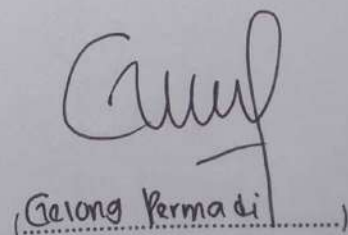 (Gelong Permadi)